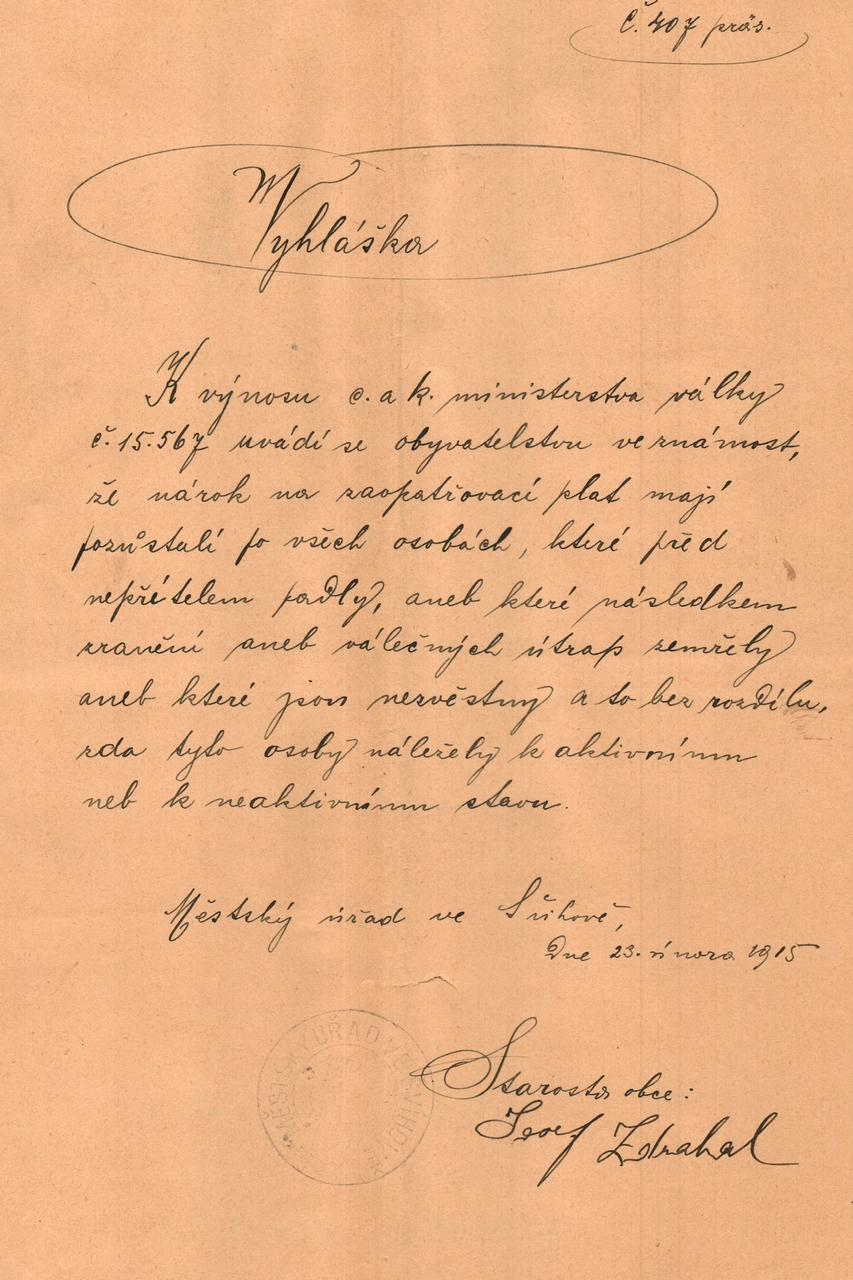 Č. 407 präs.
Vyhláška
K výnosu c. a k. ministerstva války
č. 15.567 uvádí se obyvatelstvu ve známost,
že nárok na zaopatřovací plat mají
pozůstalí po všech osobách, které před
nepřítelem padly, aneb které následkem
zranění aneb válečných útrap zemřely
aneb které jsou nezvěstny a to bez rozdílu,
zda tyto osoby náležely k aktivnímu
neb k neaktivnímu stavu.
Městský úřad ve
Dne 23. února 1915
MĚSTSKÝ ÚŘAD VE
Starosta obce:
Josef Zdrahal